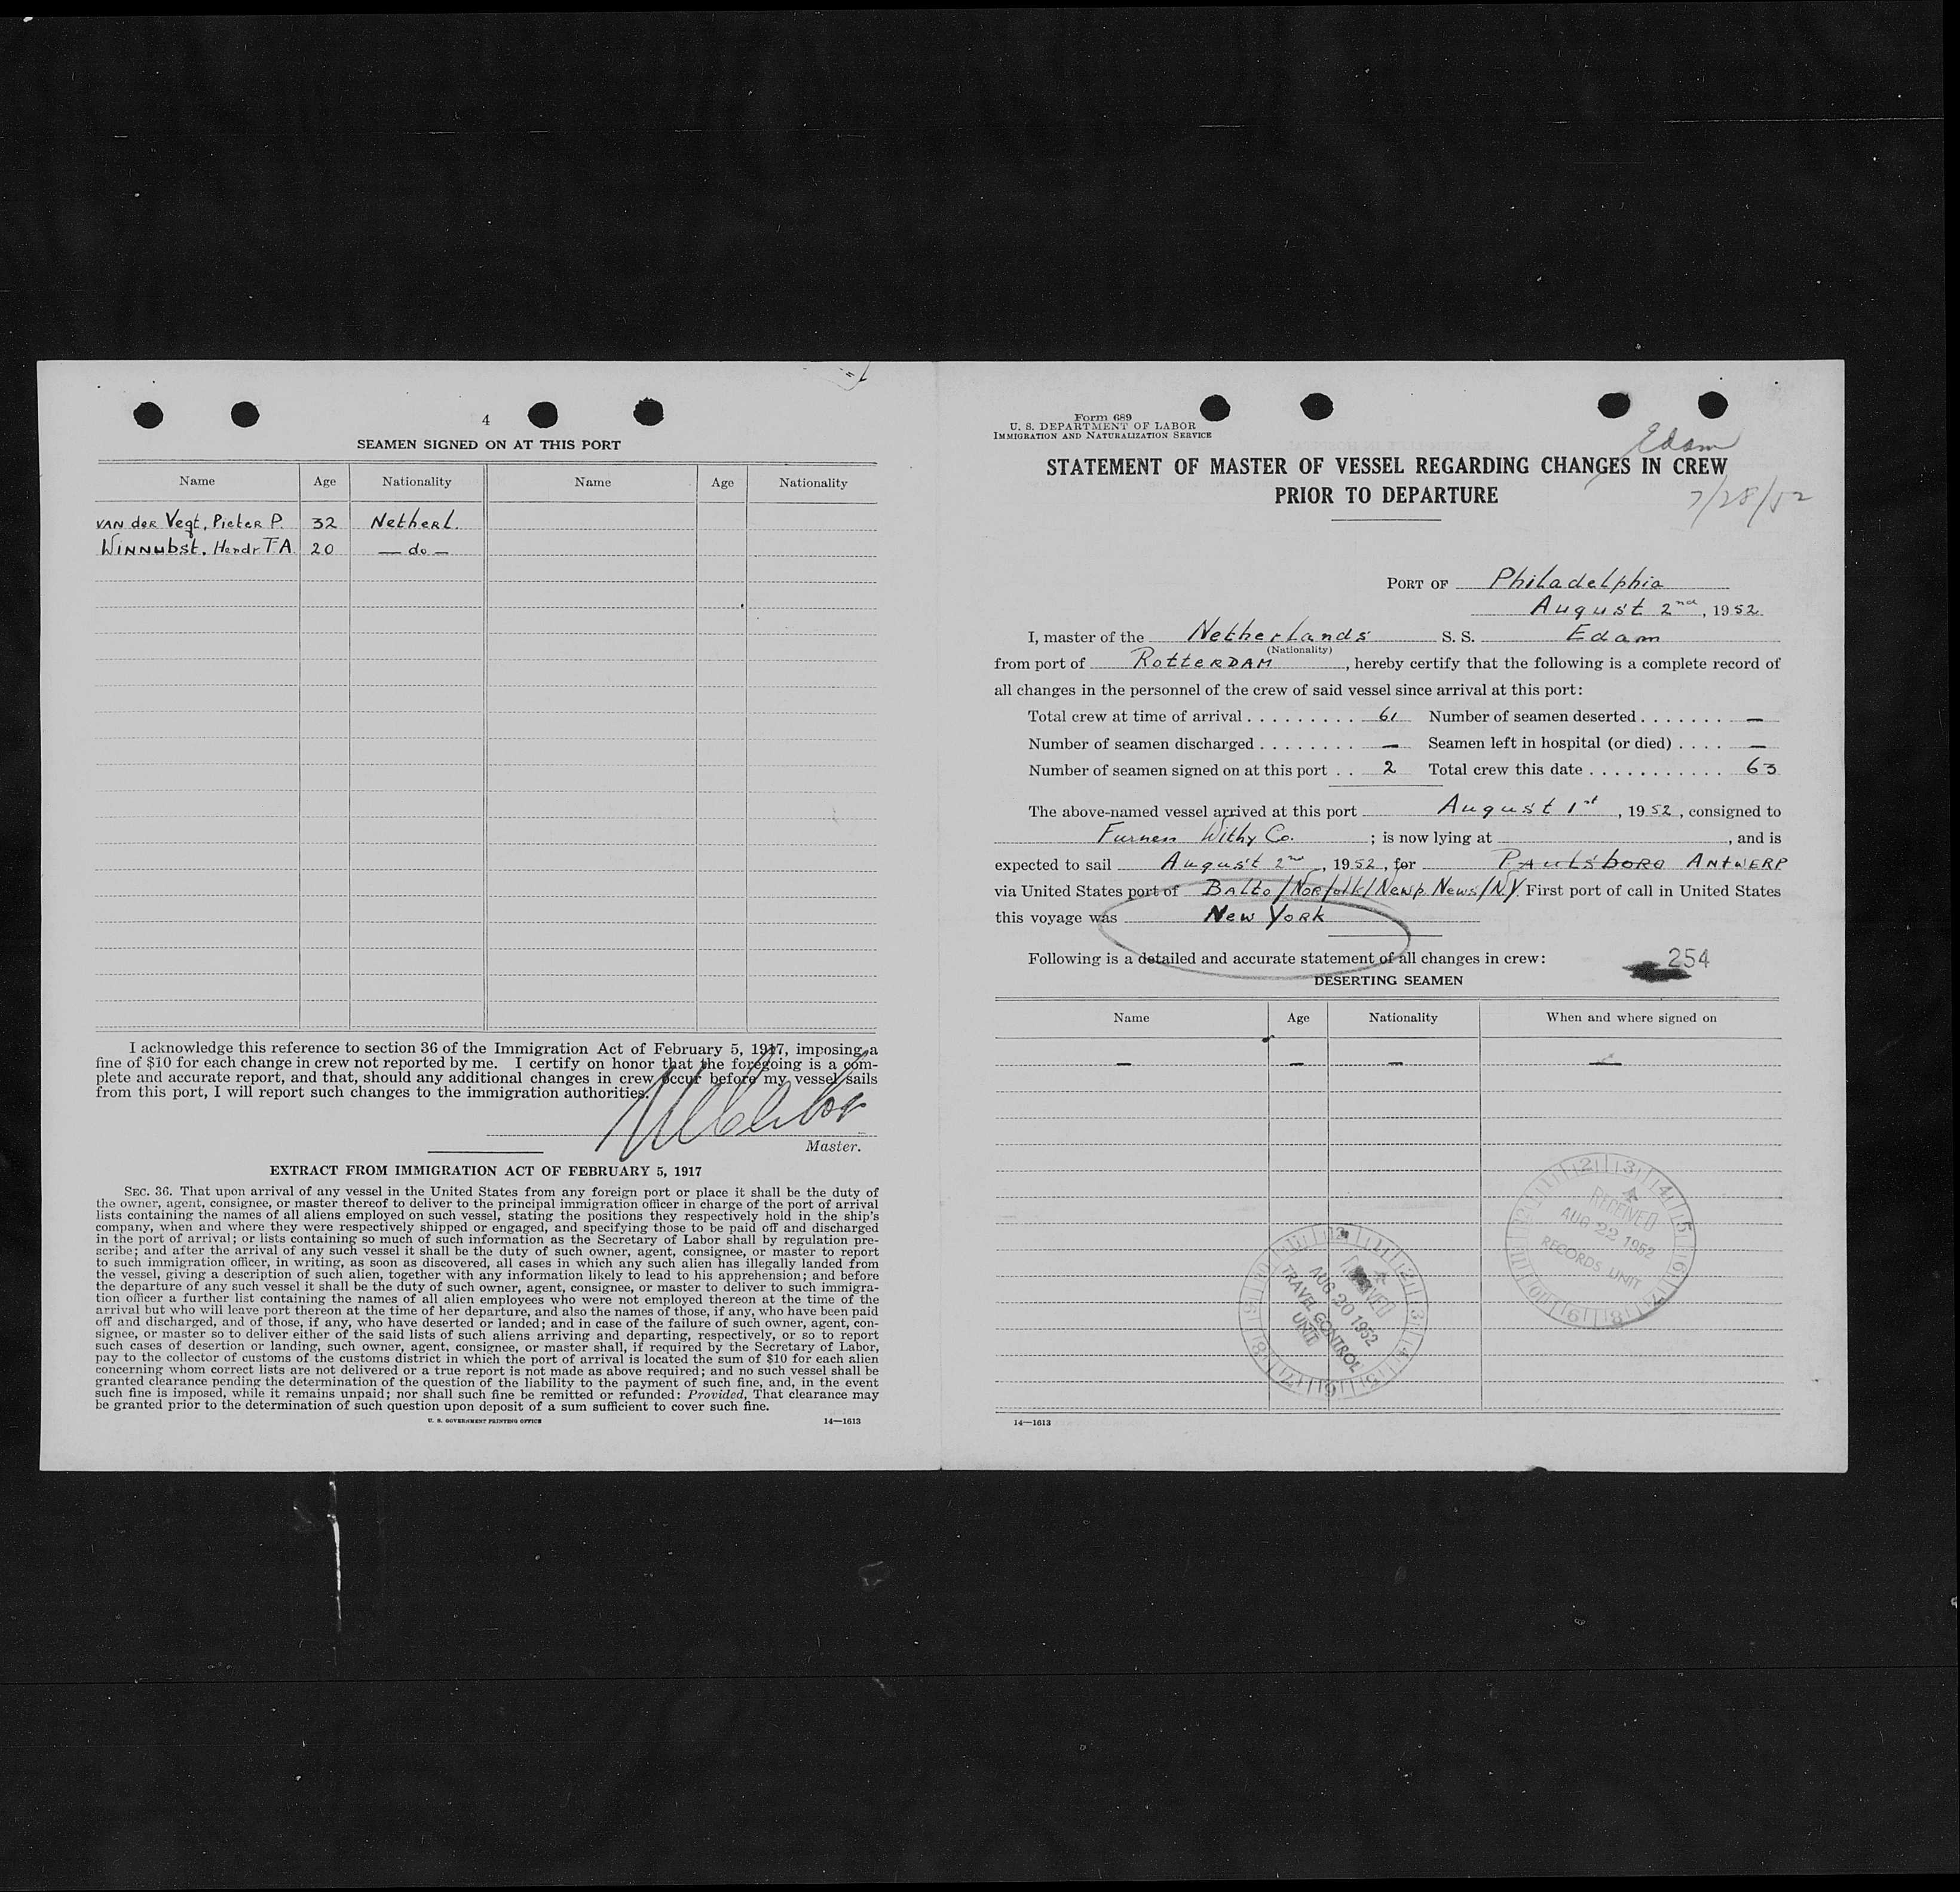 4
SEAMEN SIGNED ON AT THIS PORT
Name Age Nationality Name Age Nationality
VAN der Vegt, Pieter P. 32 Netherl.
Winnubst. Hendr T A. 20 — do —
I acknowledge this reference to section 36 of the Immigration Act of February 5, 1917, imposing a
fine of $10 for each change in crew not reported by me. I certify on honor that the foregoing is a com-
plete and accurate report, and that, should any additional changes in crew occur before my vessel sails
from this port, I will report such changes to the immigration authorities.
Master.
EXTRACT FROM IMMIGRATION ACT OF FEBRUARY 5, 1917
SEC. 36. That upon arrival of any vessel in the United States from any foreign port or place it shall be the duty of
the owner, agent, consignee, or master thereof to deliver to the principal immigration officer in charge of the port of arrival
lists containing the names of all aliens employed on such vessel, stating the positions they respectively hold in the ship's
company, when and where they were respectively shipped or engaged, and specifying those to be paid off and discharged
in the port of arrival; or lists containing so much of such information as the Secretary of Labor shall by regulation pre-
scribe; and after the arrival of any such vessel it shall be the duty of such owner, agent, consignee, or master to report
to such immigration officer, in writing, as soon as discovered, all cases in which any such alien has illegally landed from
the vessel, giving a description of such alien, together with any information likely to lead to his apprehension; and before
the departure of any such vessel it shall be the duty of such owner, agent, consignee, or master to deliver to such immigra-
tion officer a further list containing the names of all alien employees who were not employed thereon at the time of the
arrival but who will leave port thereon at the time of her departure, and also the names of those, if any, who have been paid
off and discharged, and of those, if any, who have deserted or landed; and in case of the failure of such owner, agent, con-
signee, or master so to deliver either of the said lists of such aliens arriving and departing, respectively, or so to report
such cases of desertion or landing, such owner, agent, consignee, or master shall, if required by the Secretary of Labor,
pay to the collector of customs of the customs district in which the port of arrival is located the sum of $10 for each alien
concerning whom correct lists are not delivered or a true report is not made as above required; and no such vessel shall be
granted clearance pending the determination of the question of the liability to the payment of such fine, and, in the event
such fine is imposed, while it remains unpaid; nor shall such fine be remitted or refunded: Provided, That clearance may
be granted prior to the determination of such question upon deposit of a sum sufficient to cover such fine.
U. S. GOVERNMENT PRINTING OFFICE 14—1613
Form 689
U. S. DEPARTMENT OF LABOR
IMMIGRATION AND NATURALIZATION SERVICE
Edam
STATEMENT OF MASTER OF VESSEL REGARDING CHANGES IN CREW
PRIOR TO DEPARTURE
7/28/52
PORT OF Philadelphia
August 2nd, 1952
I, master of the Netherlands S. S. Edam
(Nationality)
from port of Rotterdam, hereby certify that the following is a complete record of
all changes in the personnel of the crew of said vessel since arrival at this port:
Total crew at time of arrival . . . . . . . . . 61 Number of seamen deserted . . . . . . . —
Number of seamen discharged . . . . . . . . — Seamen left in hospital (or died) . . . . —
Number of seamen signed on at this port . . 2 Total crew this date . . . . . . . . . . . 63
The above-named vessel arrived at this port August 1st, 1952, consigned to
Furness Withy Co. ; is now lying at , and is
expected to sail August 2nd, 1952, for Paulsboro ANTWERP
via United States port of Balto/Norfolk/Newp. News/N.Y. First port of call in United States
this voyage was New York
Following is a detailed and accurate statement of all changes in crew:
254
DESERTING SEAMEN
Name Age Nationality When and where signed on
— — — —
RECEIVED
AUG 22 1952
RECORDS UNIT
RECEIVED
AUG 20 1952
TRAVEL CONTROL
UNIT
14—1613